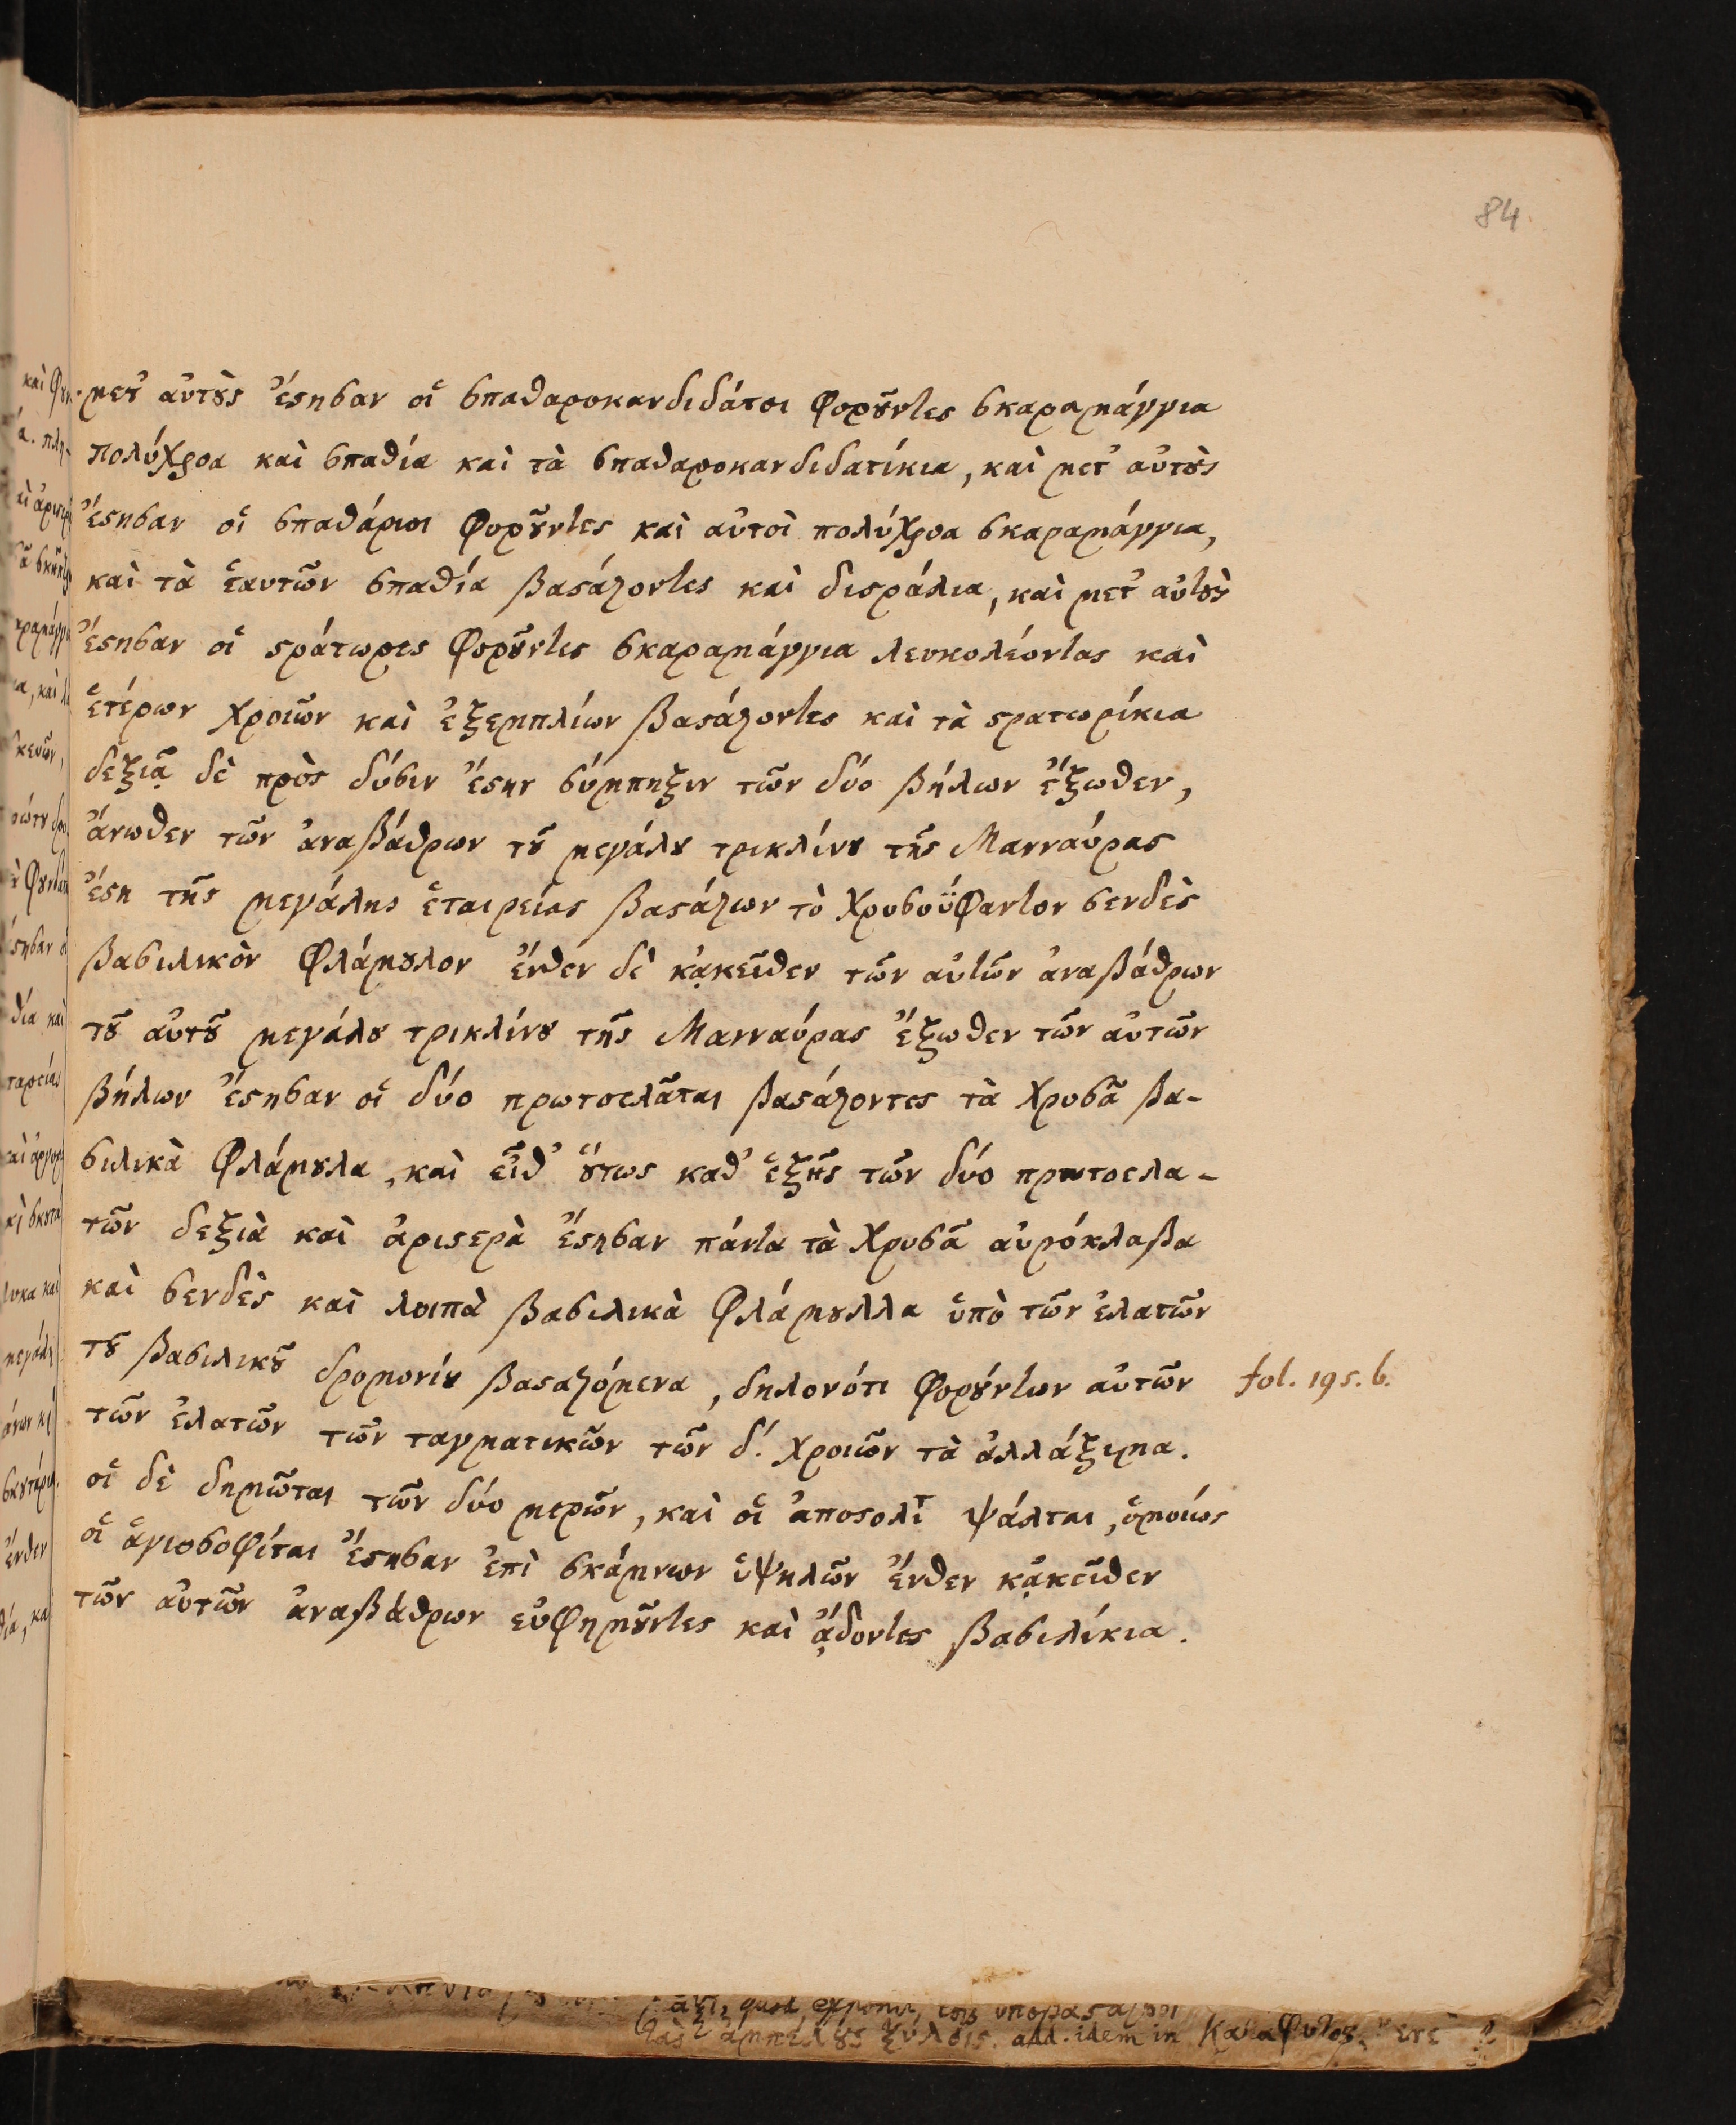 84.
μετ᾽ αὐτȣ̀ς ἔϛησαν οἱ σπαθαροκανδιδάτοι φορȣ͂ντες σκαραμάγγια
πολύχροα καὶ σπαθία καὶ τὰ σπαθαροκανδιδατίκια, καὶ μετ᾽ αὐτȣ̀ς
ἔϛησαν οἱ σπαθάριοι φορȣ͂ντες καὶ αὐτοὶ πολύχροα σκαραμάγγια,
καὶ τὰ ἑαυτῶν σπαθία βαϛάζοντες καὶ διϛράλια, καὶ μετ᾽ αὐτȣ̀ς
ἔϛησαν οἱ ϛράτωρες φορȣ͂ντες σκαραμάγγια λευκολέοντας καὶ
ἑτέρων χροιῶν καὶ ἐξεμπλίων βαϛάζοντες καὶ τὰ ϛρατωρίκια
δεξιᾷ δὲ πρὸς δύσιν ἔϛην σύμπηξιν τῶν δύο βήλων ἔξωθεν,
ἄνωθεν τῶν ἀναβάθρων τȣ͂ μεγάλȣ τρικλίνȣ τῆς Μανναύρας
ἔϛη τῆς μεγάλης ἑταιρείας βαϛάζων τὸ χρυσοΰφαντον σενδὲς
βασιλικὸν φλάμȣλον ἔνθεν δὲ κᾀκεῖθεν τῶν αὐτῶν ἀναβάθρων
τȣ͂ αὐτȣ͂ μεγάλȣ τρικλίνȣ τῆς Μανναύρας ἔξωθεν τῶν αὐτῶν
βήλων ἔϛησαν οἱ δύο πρωτοελᾶται βαϛάζοντες τὰ χρυσᾶ βα-
σιλικὰ φλάμȣλα, καὶ εἶθ᾽ ȣ̔́τως καθ᾽ ἑξῆς τῶν δύο πρωτοελα-
τῶν δεξιὰ καὶ ἀριϛερὰ ἔϛησαν πάντα τὰ χρυσᾶ αὐρόκλαβα
καὶ σενδὲς καὶ λοιπὰ βασιλικὰ φλάμȣλλα ὑπὸ τῶν ἐλατῶν
τȣ͂ βασιλικȣ͂ δρομονίȣ βαϛαζόμενα, δηλονότι φορȣ́ντων αὐτῶν fol. 195. b.
τῶν ἐλατῶν τῶν ταγματικῶν τῶν δ´. χροιῶν τὰ ἀλλάξιμα.
οἱ δὲ δημῶται τῶν δύο μερῶν, καὶ οἱ ἀποϛολῖτ ψάλται, ὁμοίως
οἱ ἁγιοσοφίται ἔϛησαν ἐπὶ σκάμνων ὑψηλῶν ἔνθεν κᾀκεῖθεν
τῶν αὐτῶν ἀναβάθρων εὐφημȣ͂ντες καὶ ᾄδοντες βασιλίκια.
quod exponit τοῖς
ἀμπέλȣς ξύλοις. add. idem in